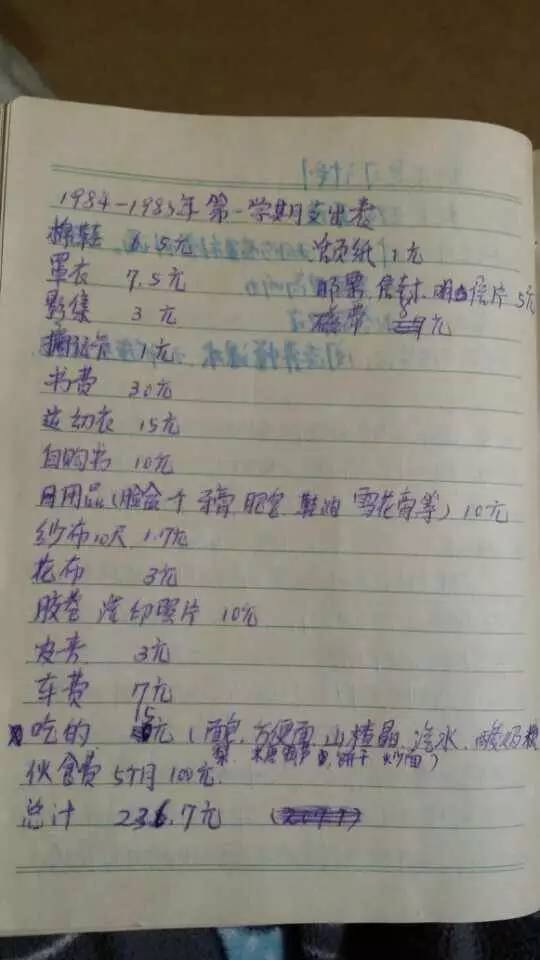 1984-1985年第一学期支出表
棉鞋 6.5元 活页纸 1元
罩衣 7.5元 邮票、信封、明信片 5元
影集 3元 磁带 9元
1元
书费 30元
运动衣 15元
自购书 10元
日用品(脸盆个 牙膏 肥皂 鞋油 雪花膏等) 10元
纱布10尺 1.7元
花布 3元
胶卷 洗印照片 10元
皮夹 3元
车费 7元
吃的 15元 ( 方便面、山楂晶、汽水、酸奶
梨、冰糖葫芦、饼干 炒面)
伙食费 5个月 100元
总计 236.7元